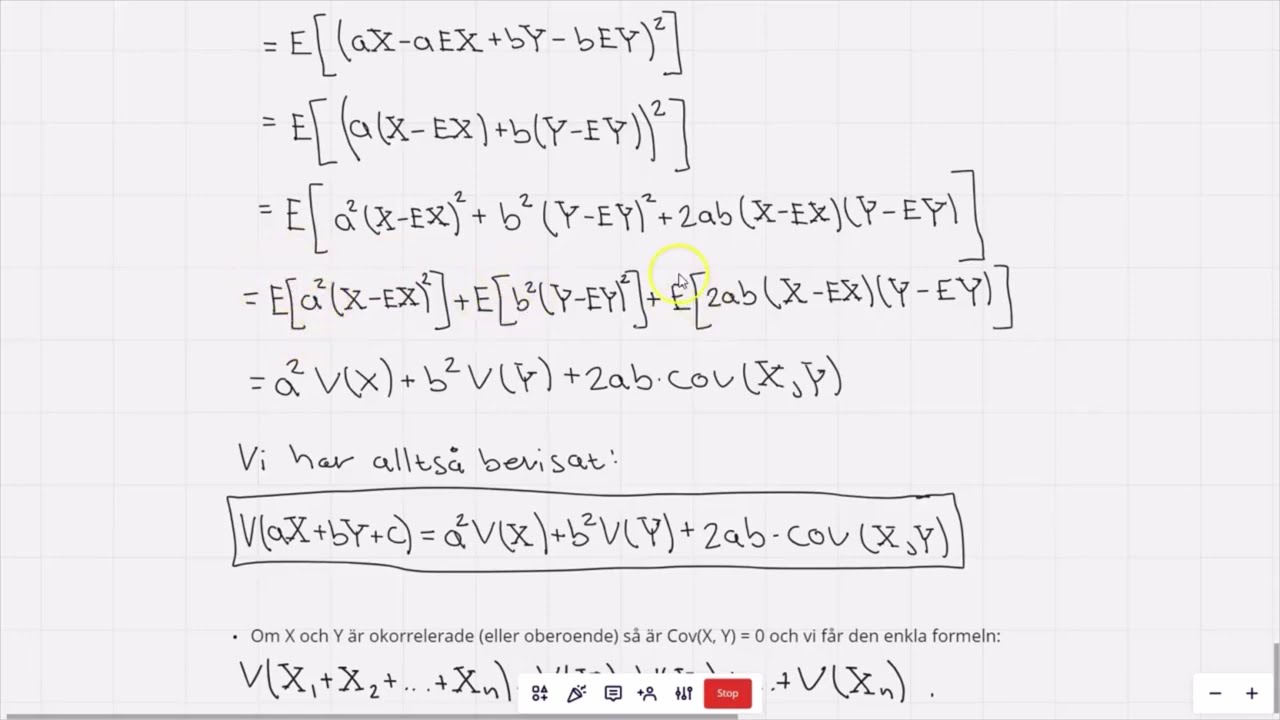 = E[(aX-aEX+bY-bEY)²]
= E[(a(X-EX)+b(Y-EY))²]
= E[a²(X-EX)²+b²(Y-EY)²+2ab(X-EX)(Y-EY)]
= E[a²(X-EX)²]+E[b²(Y-EY)²]+E[2ab(X-EX)(Y-EY)]
= a²V(X)+b²V(Y)+2ab·cov(X,Y)
Vi har alltså bevisat:
V(aX+bY+c)=a²V(X)+b²V(Y)+2ab·cov(X,Y)
• Om X och Y är okorrelerade (eller oberoende) så är Cov(X, Y) = 0 och vi får den enkla formeln:
V(X₁+X₂+...+Xₙ) ..+V(Xₙ).
Stop